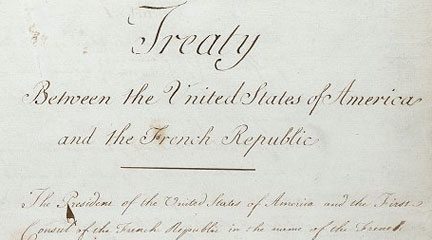 Treaty
Between the United States of America
and the French Republic
The President of the United States of America and the First
Consul of the French Republic in the name of the French